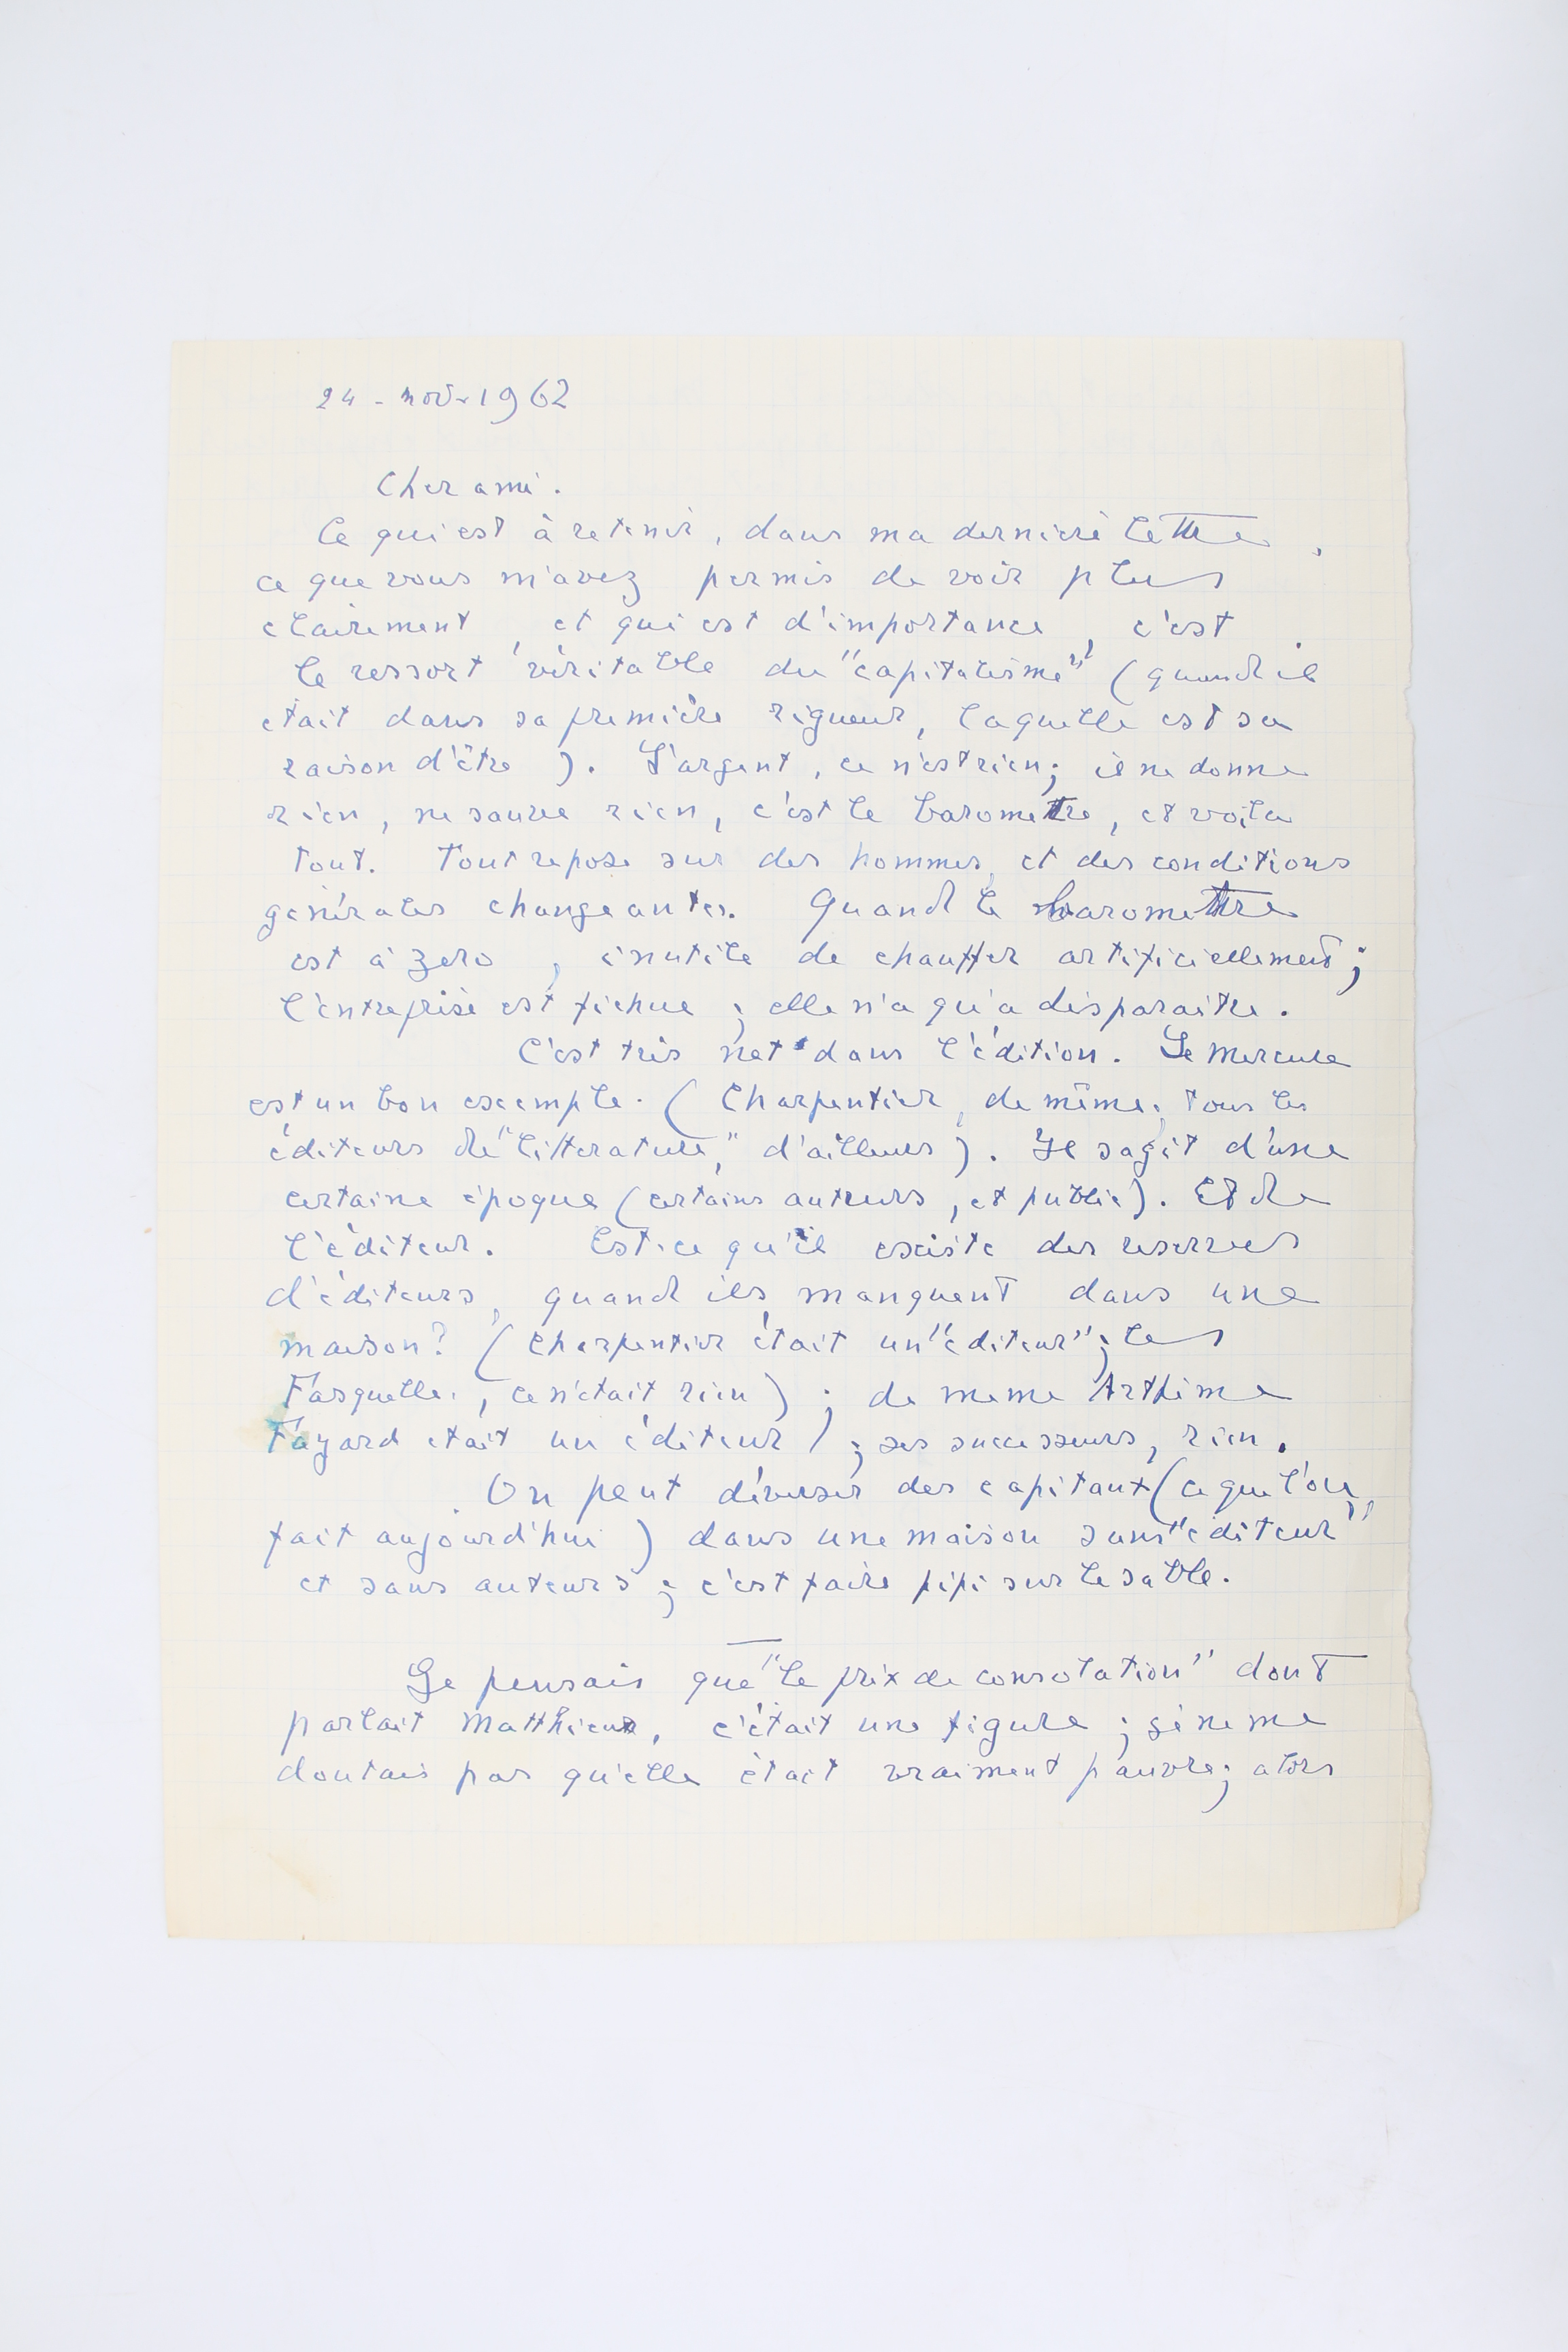 24 - nov - 1962
Cher ami.
Ce qui est à retenir, dans ma dernière lettre,
ce que vous m'avez permis de voir plus
clairement, et qui est d'importance, c'est
le ressort véritable du "capitalisme" (quand il
était dans sa première rigueur, laquelle est sa
raison d'être). L'argent, ce n'est rien; il ne donne
rien, ne sauve rien, c'est le baromettre, et voila
tout. Tout repose sur des hommes, et des conditions
générales changeantes. Quand le baromettre
est à zero, inutile de chauffer artificiellement;
l'entreprise est fichue; elle n'a qu'a disparaitre.
C'est très net dans l'édition. Le Mercure
est un bon exemple. (Charpentier, de même; tous les
éditeurs de "litterature," d'ailleurs). Il sagit d'une
certaine époque (certains auteurs, et public). Et de
l'éditeur. Est-ce qu'il existe des reserves
d'éditeurs, quand ils manquent dans une
maison? (Charpentier était un "éditeur"; les
Fasquelle, ce n'était rien); de meme Arthème
Fayard etait un éditeur); ses successeurs, rien.
On peut déverser des capitaux (ce que l'on
fait aujourd'hui) dans une maison sans "éditeur"
et sans auteurs; c'est faire pipi sur le sable.
Je pensais que "le prix de consolation" dont
parlait Matthieu, c'était une figure; je ne me
doutais pas qu'elle était vraiment pauvre; alors